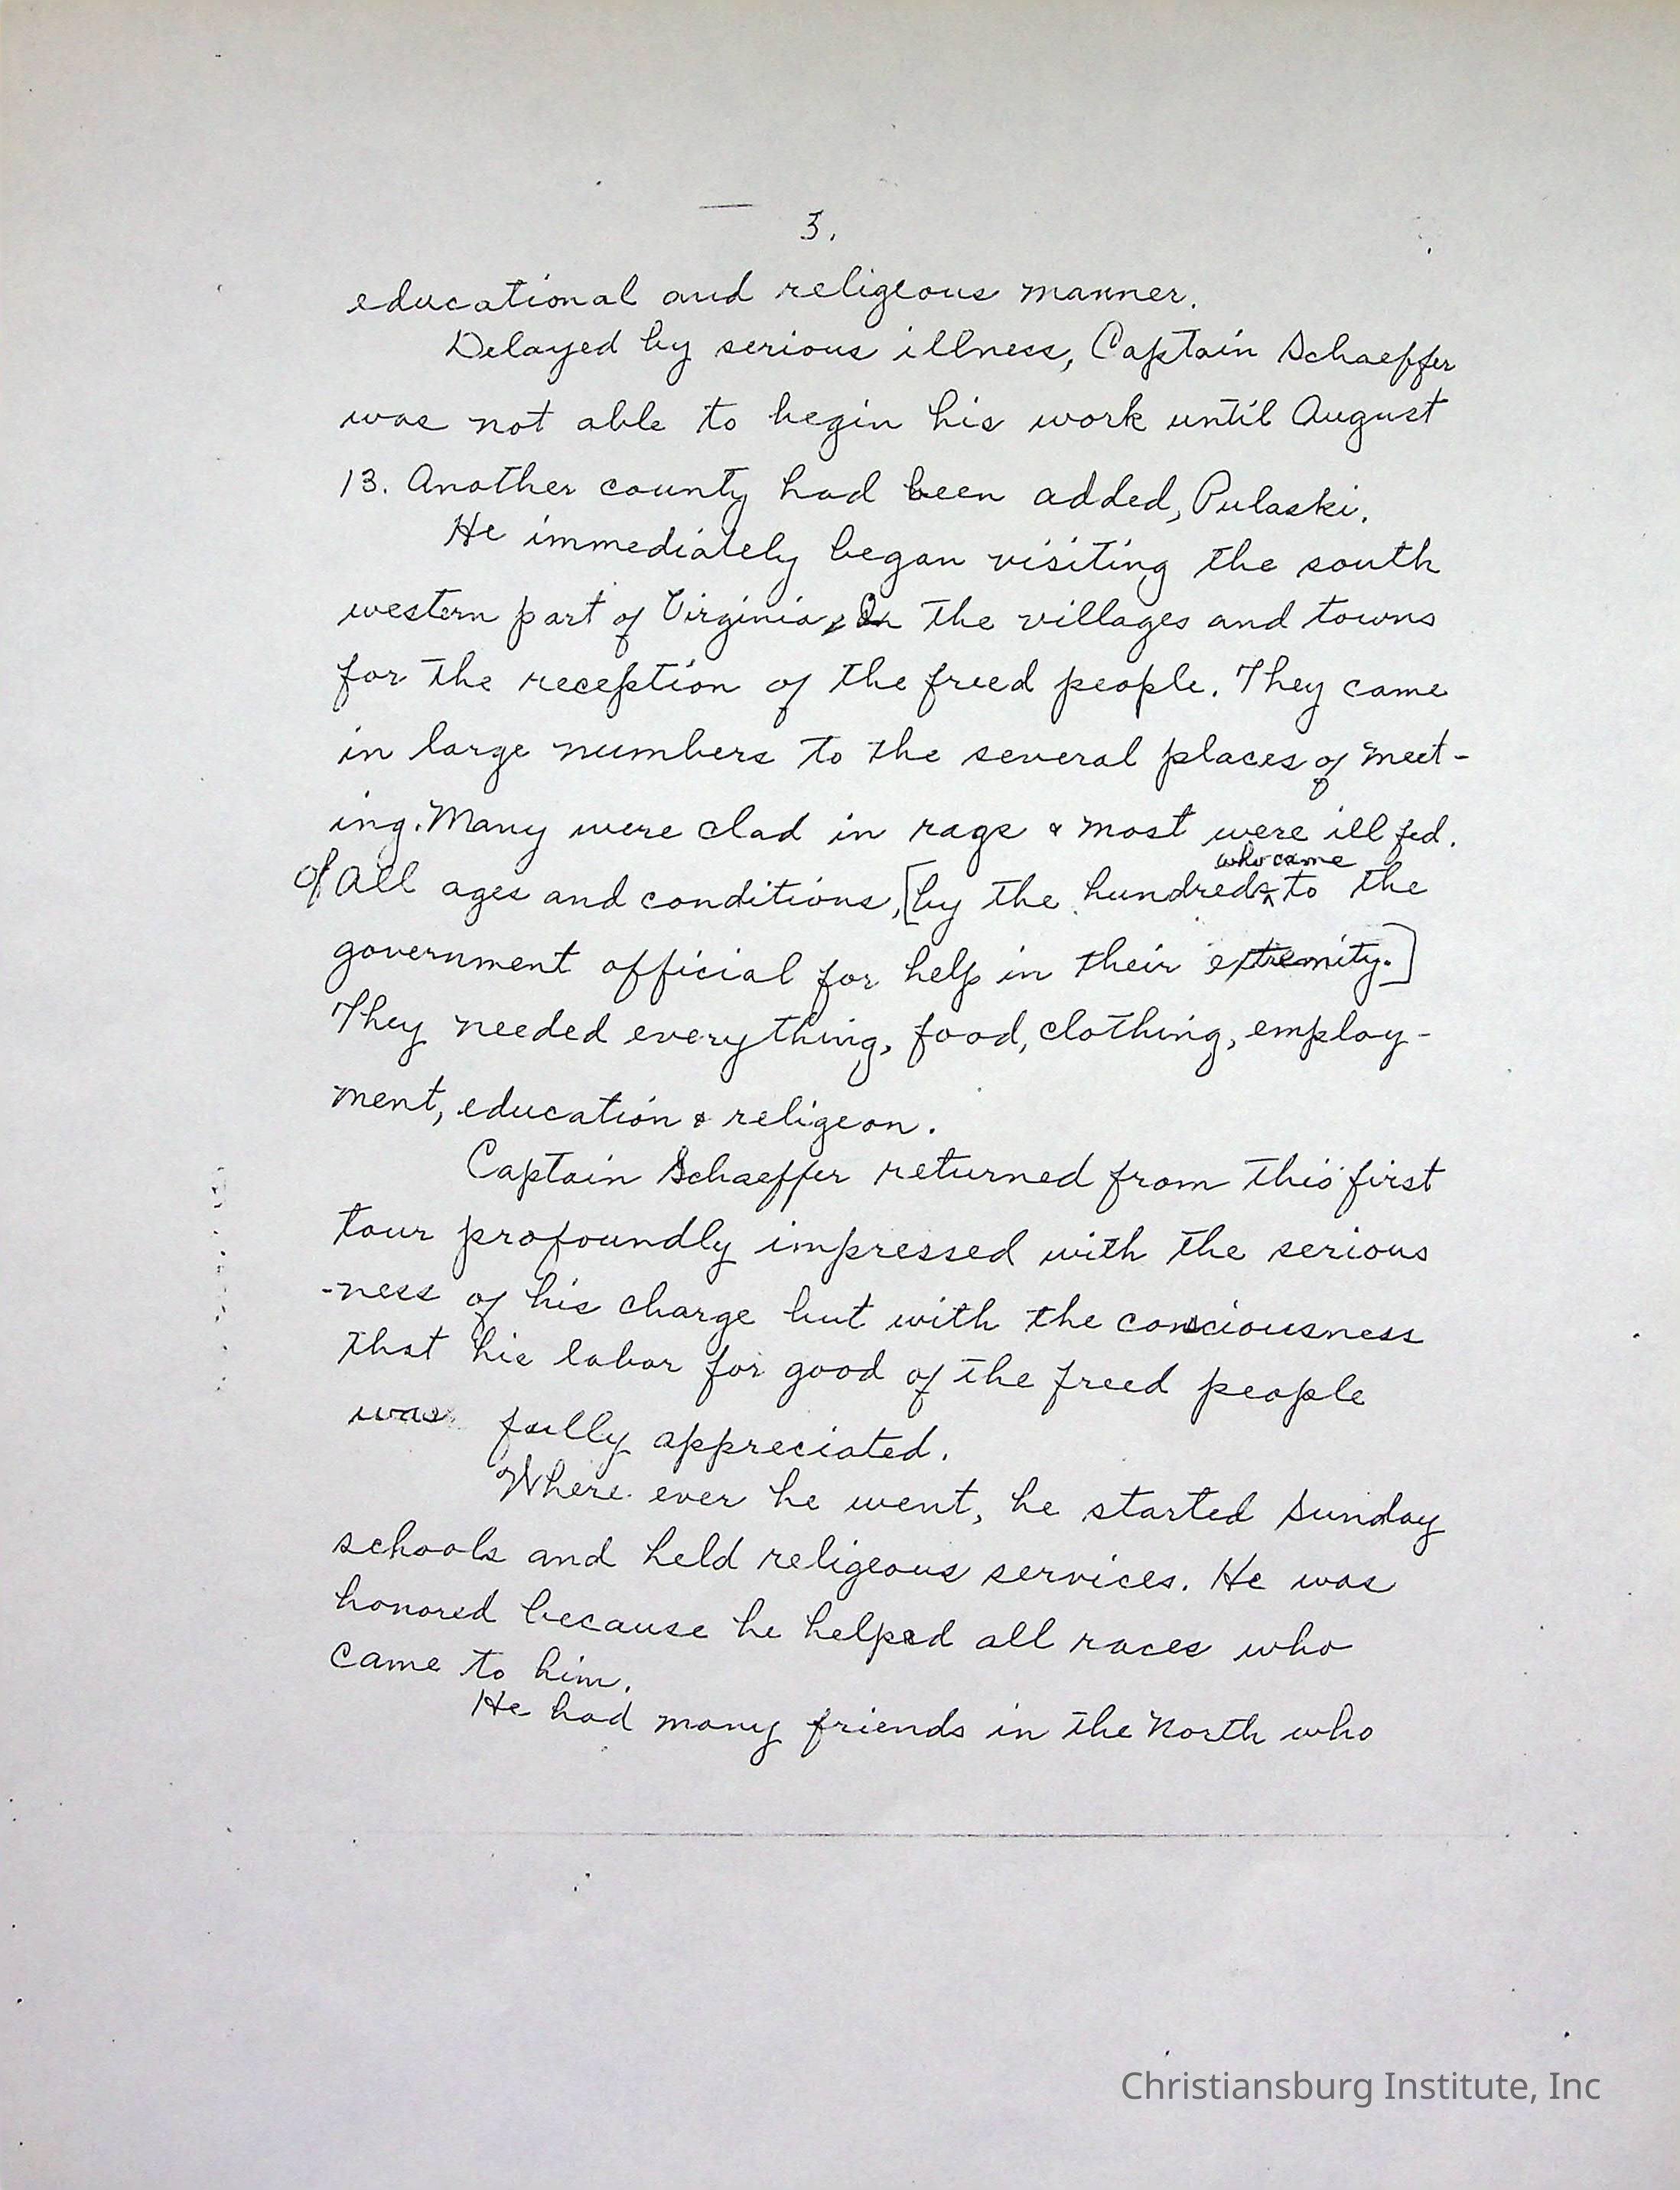 3.
educational and religeous manner.
Delayed by serious illness, Captain Schaeffer
was not able to begin his work until August
13. Another county had been added, Pulaski.
He immediately began visiting the south
western part of Virginia, In the villages and towns
for the reception of the freed people. They came
in large numbers to the several places of meet-
ing. Many were clad in rags & most were ill fed.
who came
of All ages and conditions, [by the hundreds ^ to the
government official for help in their extremity.]
They needed everything, food, clothing, employ-
ment, education & religeon.
Captain Schaeffer returned from this first
tour profoundly impressed with the serious
-ness of his charge but with the consciousness
that his labor for good of the freed people
was fully appreciated.
Where ever he went, he started Sunday
schools and held religeous services. He was
honored because he helped all races who
came to him.
He had many friends in the North who
Christiansburg Institute, Inc